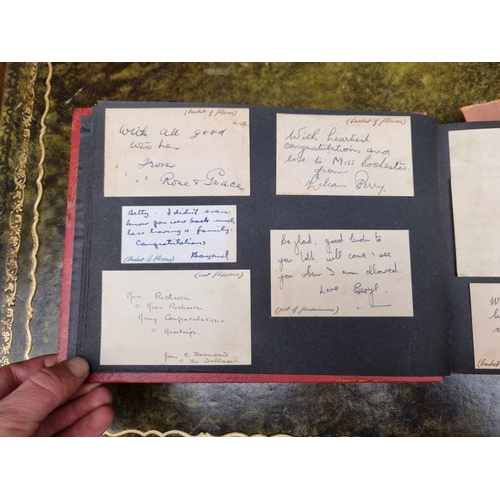 (basket of flowers)
With all good
wishes
from
" " Rose & Grace
Betty. I didn't even
know you were back much
less having a family.
Congratulations
(basket of flowers)
(cut flowers)
Mrs Rochester
& Miss Rochester
Many Congratulations
& greetings
from
(basket of flowers)
With heartiest
congratulations and
love to Miss Rochester.
from
Lilian Perry.
So glad, good luck to
you both, will come & see
you when I am allowed.
Love Beryl
(pot of